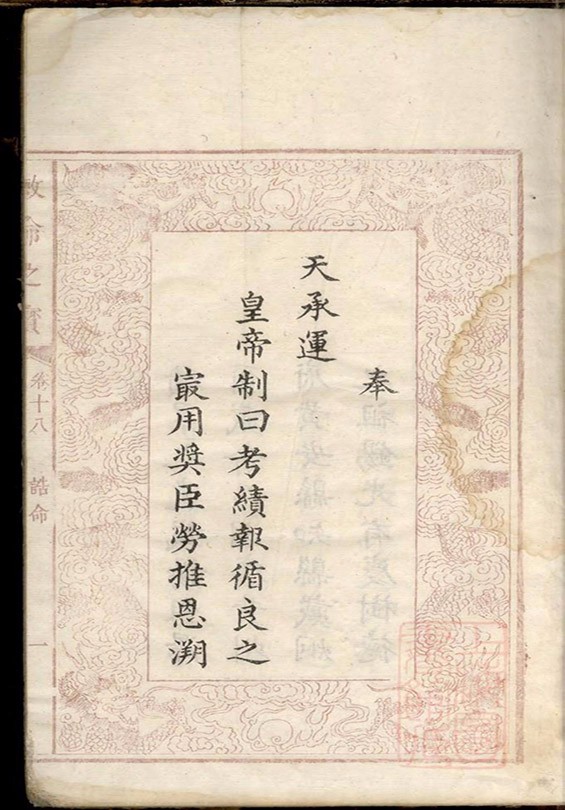 奉
天承運
皇帝制曰考績報循良之
㝡用奨臣勞推恩溯
敕命之寶
卷十八
誥命
一